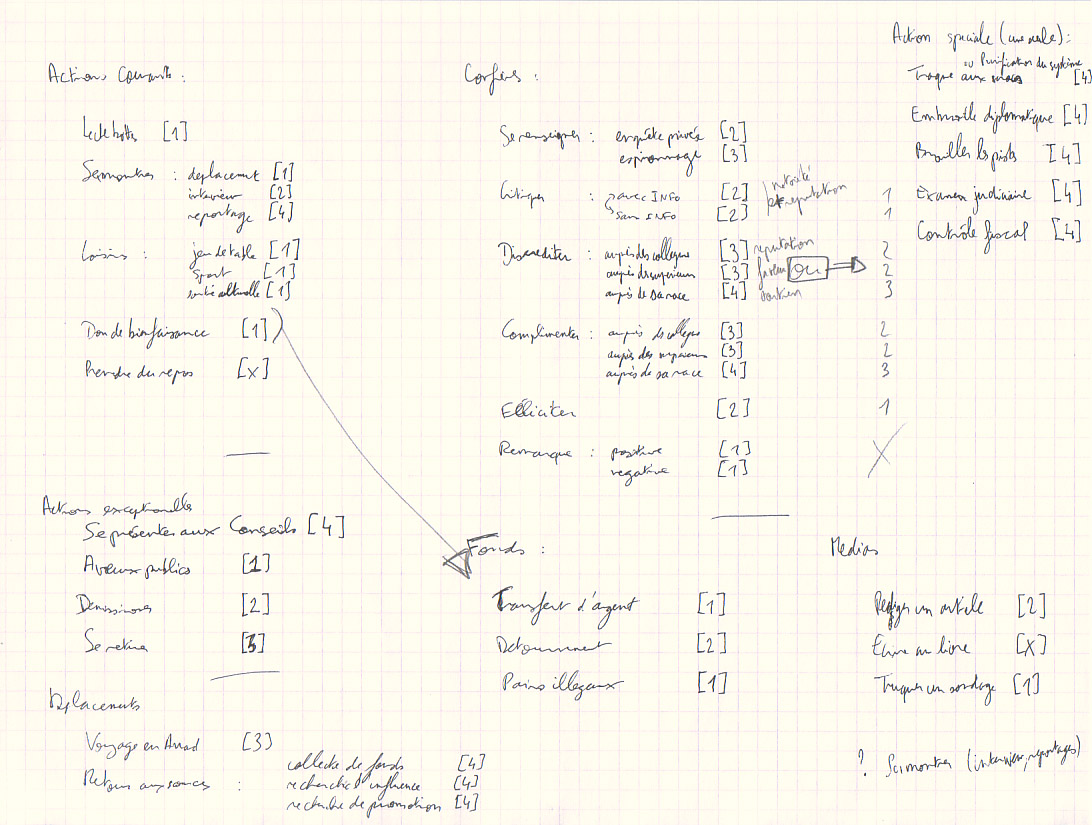 Actions Courantes :
Lèche bottes [1]
Se montrer : déplacement [1]
interview [2]
reportage [4]
Loisirs : jeu de table [1]
sport [1]
sortie culturelle [1]
Don de bienfaisance [1]
Prendre du repos [X]
Actions exceptionnelles
Se présenter aux Conseils [4]
Aveux publics [1]
Démissionner [2]
Se retirer [3]
Déplacements
Voyage en [3]
Retour aux sources : collecte de fonds [4]
recherche d'influence [4]
recherche de promotion [4]
Confrères :
Se renseigner : enquête privée [2]
espionnage [3]
Critiquer : avec INFO [2] notoriété 1
sans INFO [2] et reputation 1
Discréditer : auprès des collègues [3] reputation 2
auprès des supérieurs [3] OU 2
auprès de sa race [4] soutien 3
Complimenter : auprès des collègues [3] 2
auprès des supérieurs [3] 2
auprès de sa race [4] 3
Féliciter [2] 1
Remarque : positive [1] X
negative [1]
Fonds :
Transfert d'argent [1]
Détournement [2]
Paris illégaux [1]
Action spéciale (une seule) :
ou Purification du système
Traque aux [4]
Embrouille diplomatique [4]
Brouiller les pistes [4]
Examen judiciaire [4]
Contrôle fiscal [4]
Médias
Rédiger un article [2]
Écrire un livre [X]
Truquer un sondage [1]
? Se montrer (interviews, reportages)